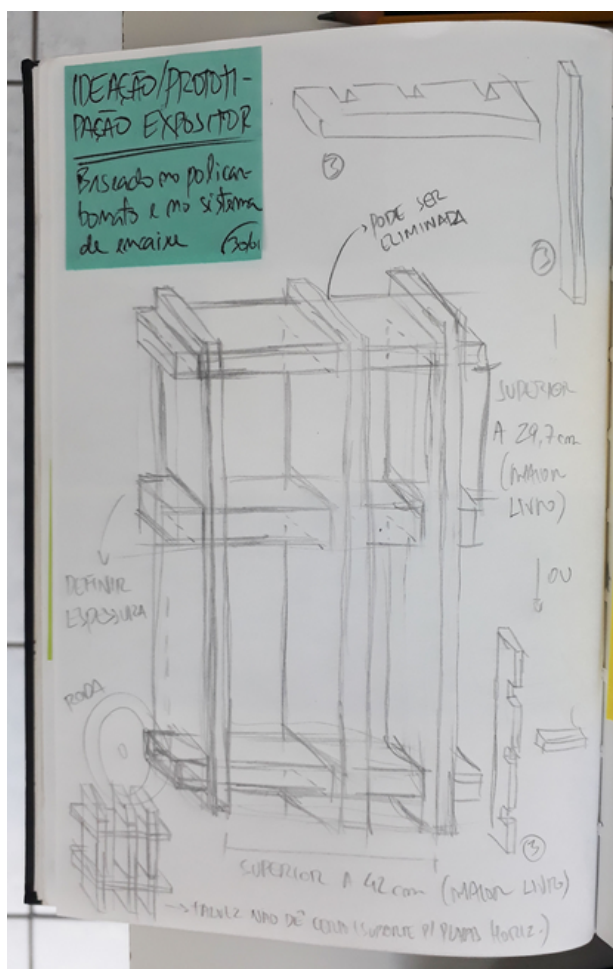 IDEAÇÃO/PROTOTI-
PAÇÃO EXPOSITOR
Baseado no policar-
bonato e no sistema
de encaixe
30/01
3
PODE SER
ELIMINADA
3
SUPERIOR
A 29,7cm
(MAIOR
LIVRO)
DEFINIR
ESPESSURA
OU
RODA
3
SUPERIOR A 42 cm (MAIOR LIVRO)
→ TALVEZ NÃO DÊ CERTO (SUPORTE P/ PLANOS HORIZ.)